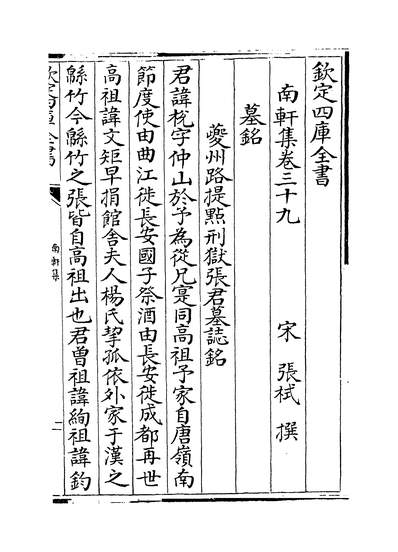 欽定四庫全書
南軒集卷三十九
宋 張栻 撰
墓銘
夔州路提㸃刑獄張君墓誌銘
君諱杬字仲山於予為從兄寔同高祖予家自唐嶺南
節度使由曲江徙長安國子祭酒由長安徙成都再世
高祖諱文矩早捐館舍夫人楊氏挈孤依外家于漢之
緜竹今緜竹之張皆自高祖出也君曽祖諱絢祖諱鈞
欽定四庫全書
南軒集
一